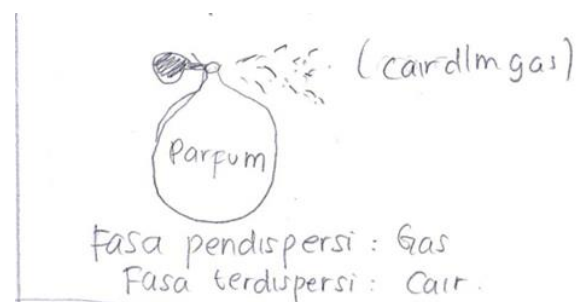 (cair dlm gas)
Parfum
Fasa pendispersi : Gas
Fasa terdispersi : Cair.